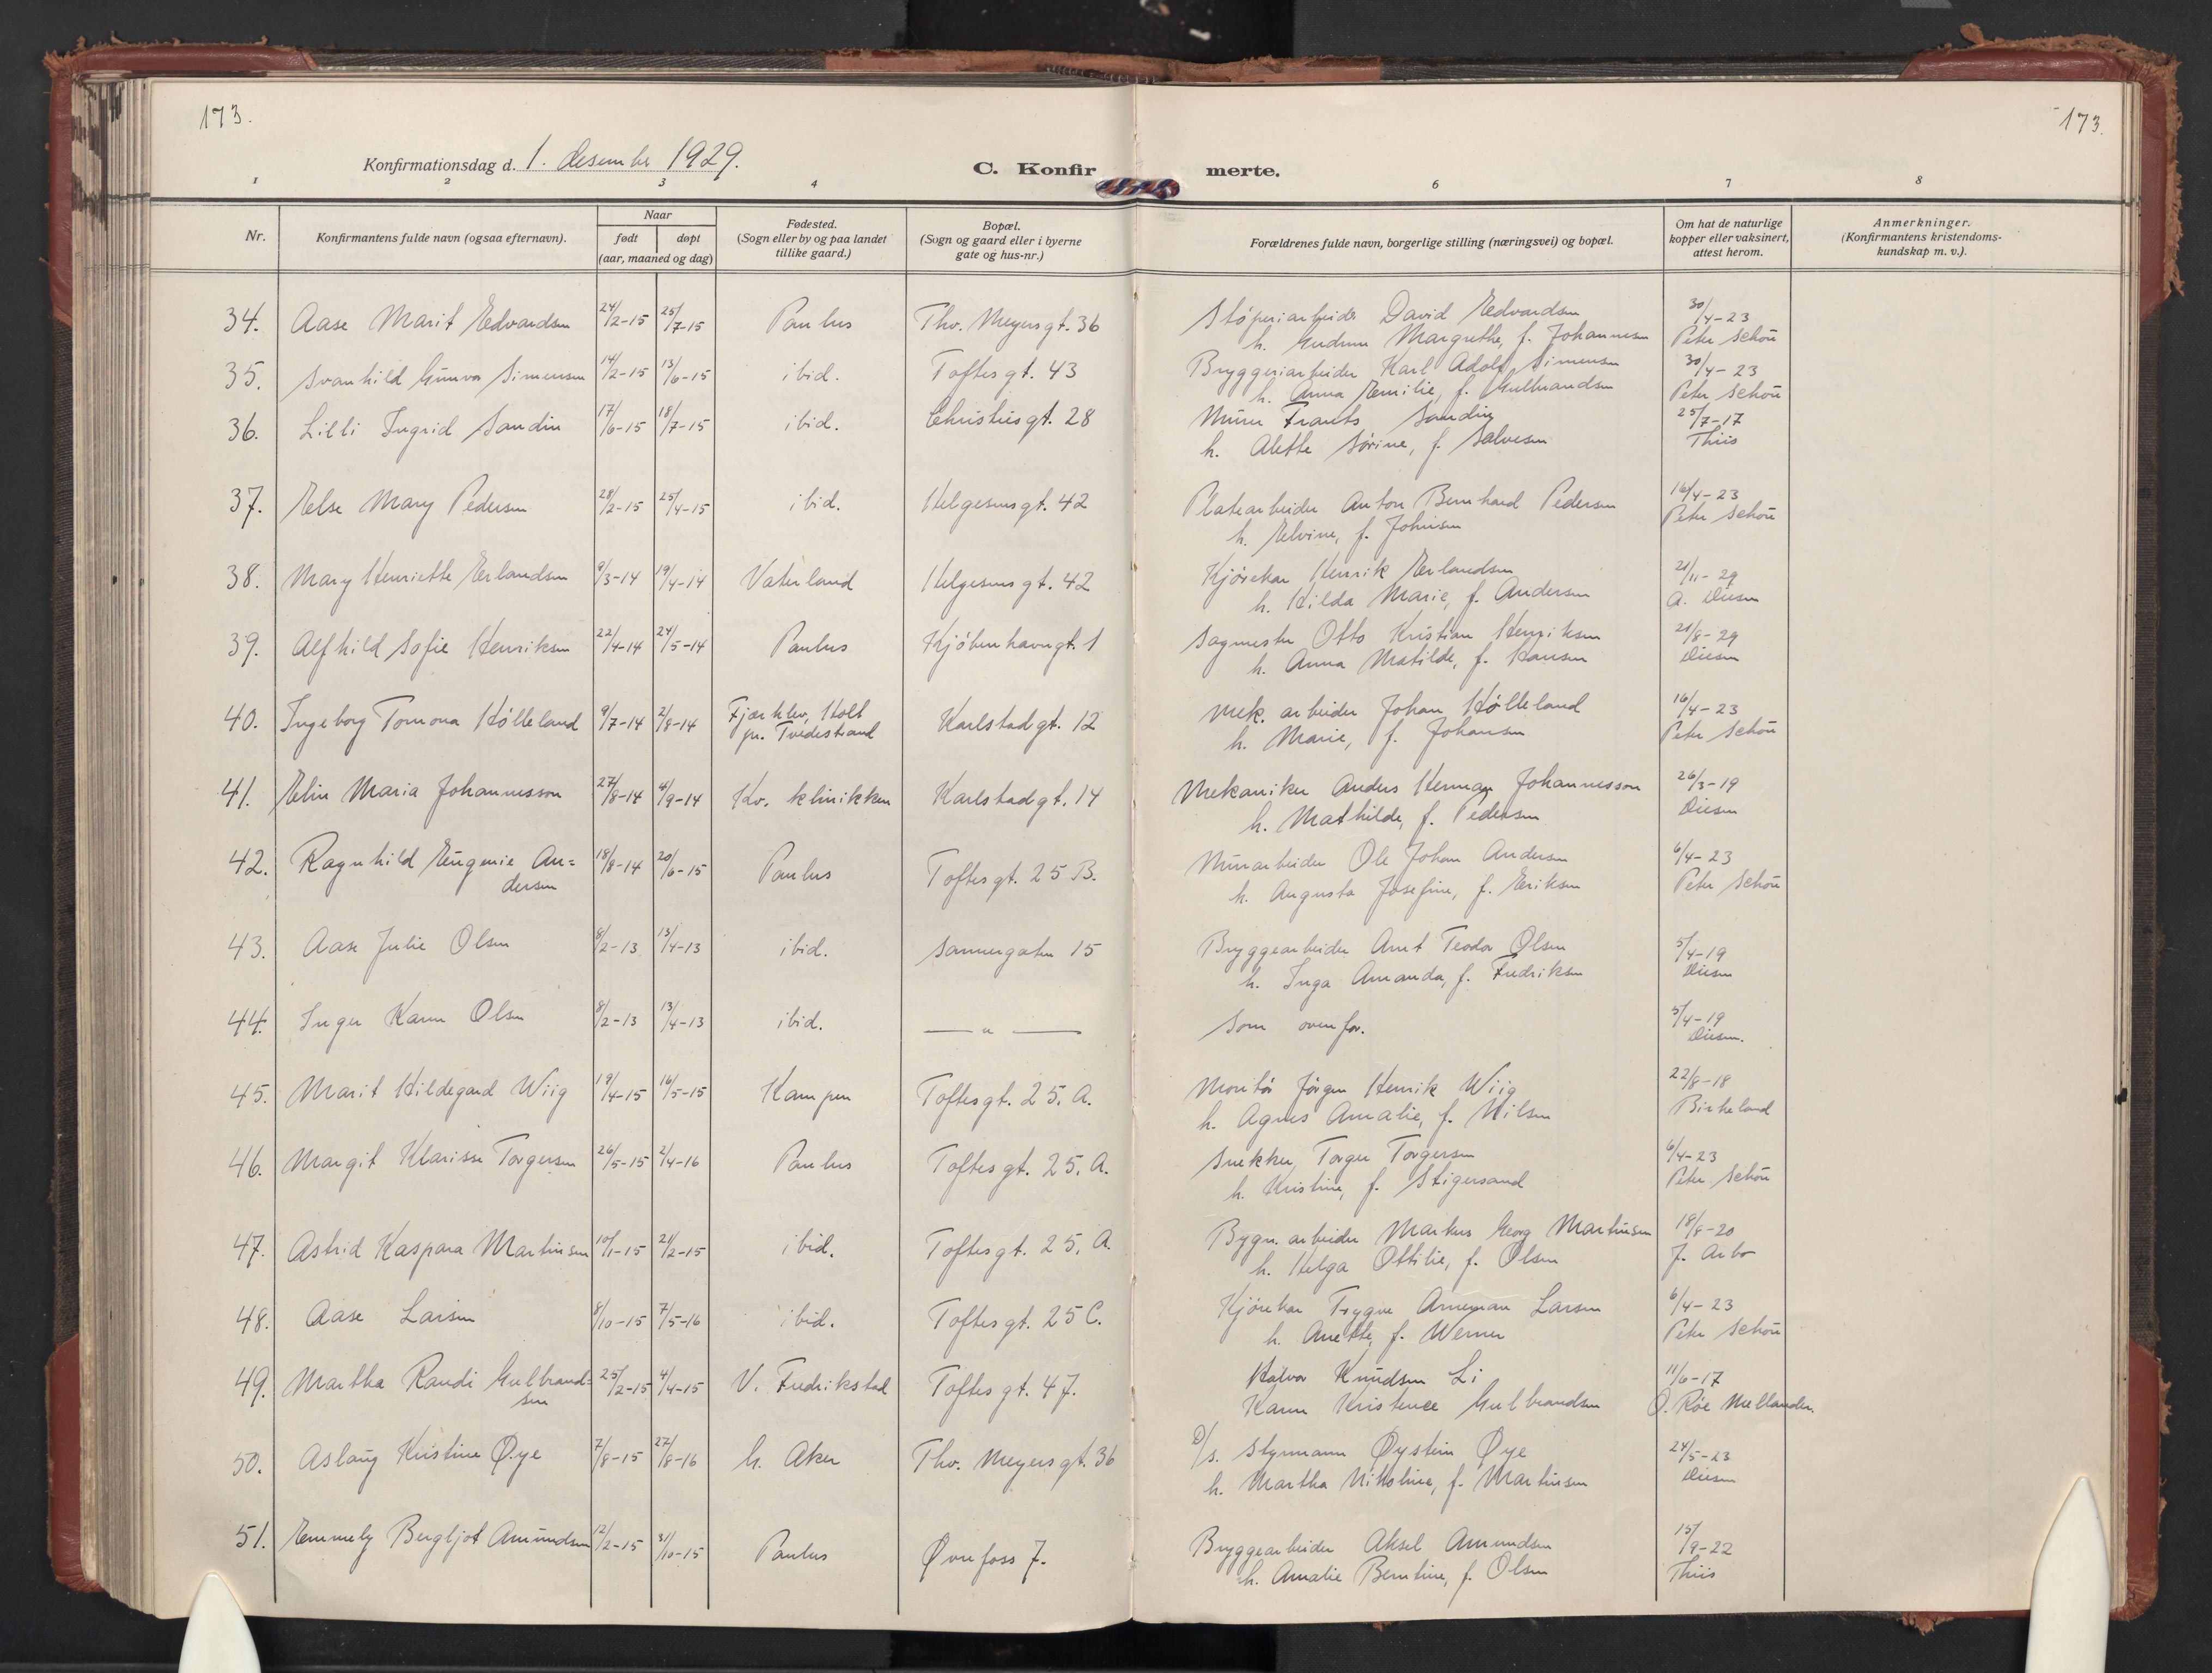 173.
173.
Konfirmationsdag d. 1. desember 1929.
C. Konfirmerte.
1 2 3 4 6 7 8
Nr.
Konfirmantens fulde navn (ogsaa efternavn).
Naar
født
døpt
(aar, maaned og dag)
Fødested.
(Sogn eller by og paa landet
tillike gaard.)
Bopæl.
(Sogn og gaard eller i byerne
gate og hus-nr.)
Forældrenes fulde navn, borgerlige stilling (næringsvei) og bopæl.
Om hat de naturlige
kopper eller vaksinert,
attest herom.
Anmerkninger.
(Konfirmantens kristendoms-
kundskap m. v.).
34. Aase Marit Edvardsen 24/2-15 25/7-15 Paulus Thv. Meyersgt. 36 Støperiarbeider David Edvardsen 30/4-23
h. Gudrun Margrethe, f. Johannesen Peter Schøu
35. Svanhild Gunvor Simensen 14/2-15 13/6-15 ibid. Toftesgt. 43 Bryggeriarbeider Karl Adolf Simensen 30/4-23
h. Anna Emilie, f. Gulbrandsen Peter Schøu
36. Lilli Ingrid Sandin 17/6-15 18/7-15 ibid. Christiesgt. 28 Murer Frants Sandin 25/7-17
h. Alette Sørine, f. Salvesen Thiis
37. Else Mary Pedersen 28/2-15 25/4-15 ibid. Helgesensgt. 42 Platearbeider Anton Bernhard Pedersen 16/4-23
h. Elvine, f. Johnsen Peter Schøu
38. Mary Henriette Erlandsen 9/3-14 19/4-14 Vaterland Helgesensgt. 42 Kjørekar Henrik Erlandsen 21/11-29
h. Hilda Marie, f. Andersen A. Diesen
39. Alfhild Sofie Henriksen 22/4-14 24/5-14 Paulus Kjøbenhavngt. 1 Sagmester Otto Kristian Henriksen 21/8-29
h. Anna Matilde, f. Hansen Diesen
40. Ingeborg Tomona Hølleland 9/7-14 2/8-14 Fjærklev, Holt Karlstadgt. 12 Mek. arbeider Johan Hølleland 16/4-23
pr. Tvedestrand h. Marie, f. Johansen Peter Schøu
41. Elin Maria Johannesson 27/8-14 4/9-14 Kv. klinikken Karlstadgt. 14 Mekaniker Anders Herman Johannesson 26/3-19
h. Mathilde, f. Pedersen Diesen
42. Ragnhild Eugenie An= 18/8-14 20/6-15 Paulus Toftesgt. 25 B. Murarbeider Ole Johan Andersen 6/4-23
dersen h. Augusta Josefine, f. Eriksen Peter Schøu
43. Aase Julie Olsen 8/2-13 13/4-13 ibid. Sannergaten 15 Bryggearbeider Arnt Teodor Olsen 5/4-19
h. Inga Amanda, f. Fredriksen Diesen
44. Inger Karen Olsen 8/2-13 13/4-13 ibid. — " — Som ovenfor. 5/4-19
Diesen.
45. Marit Hildegard Wiig 19/4-15 16/5-15 Kampen Toftesgt. 25. A. Montør Jørgen Henrik Wiig 22/8-18
h. Agnes Amalie, f. Nilsen Birkeland
46. Margit Klarisse Torgersen 26/5-15 2/4-16 Paulus Toftesgt. 25. A. Snekker Torger Torgersen 6/4-23
h. Kristine, f. Stigersand Peter Schøu
47. Astrid Kaspara Martinsen 10/1-15 21/2-15 ibid. Toftesgt. 25. A. Bygn. arbeider Markus Georg Martinsen 18/8-20
h. Helga Ottilie, f. Olsen J. Arbo
48. Aase Larsen 8/10-15 7/5-16 ibid. Toftesgt. 25 C. Kjørekar Trygve Larsen 6/4-23
h. Anette, f. Werner Peter Schøu
49. Martha Randi Gulbrand= 25/2-15 4/4-15 V. Fredrikstad Toftesgt. 47. Halvor Knudsen Li 11/6-17
sen Karen Kristence Gulbrandsen O. Røe Mellander.
50. Aslaug Kristine Øye 7/8-15 27/8-16 h. Aker Thv. Meyersgt. 36 D/s. Styrmann Øystein Øye 24/5-23
h. Martha Nikoline, f. Martinsen Diesen
51. Emmely Bergljot Amundsen 12/2-15 31/10-15 Paulus Øvrefoss 7. Bryggearbeider Aksel Amundsen 15/9-22
h. Amalie Berntine, f. Olsen Thiis